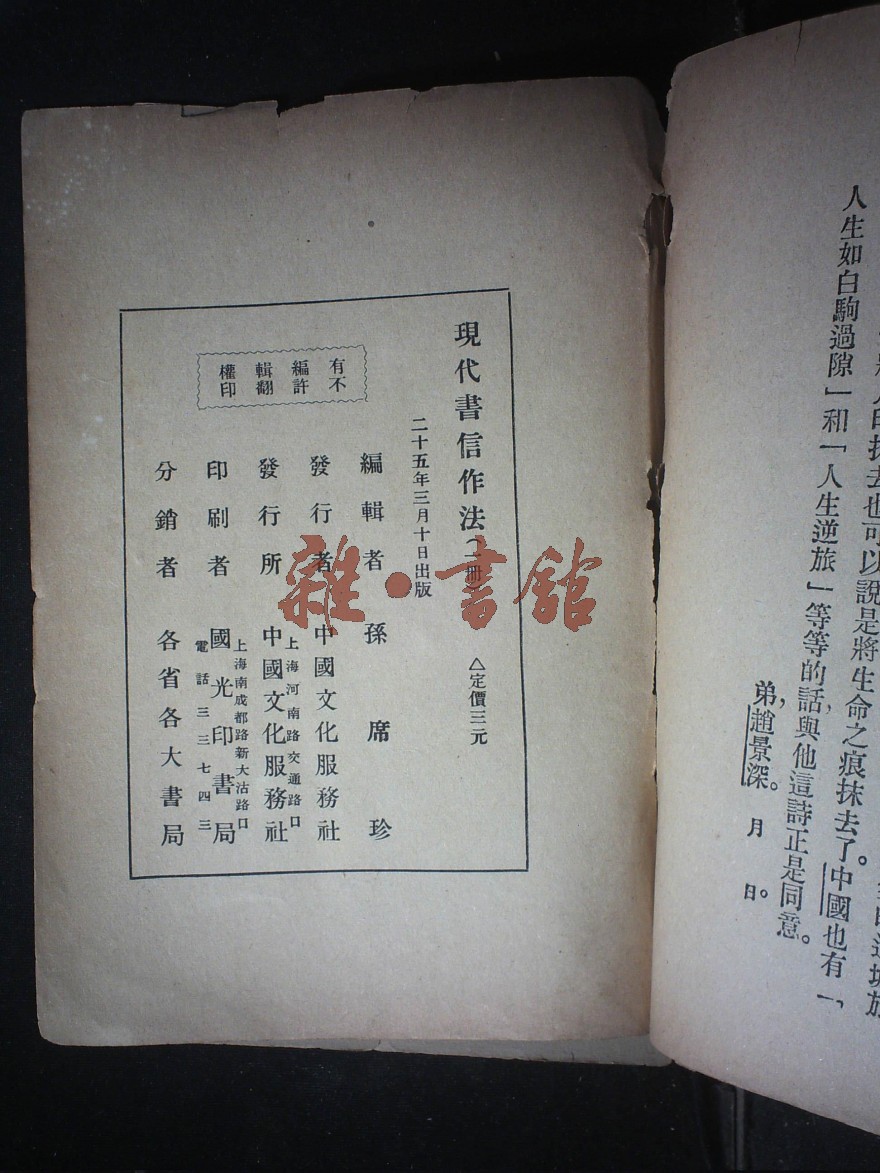 印抹去也可以說是將生命之痕抹去了。中國也有「
人生如白駒過隙」和「人生逆旅」等等的話，與他這詩正是同意。
弟，趙景深。 月 日。
現代書信作法(一冊) △定價三元
二十五年三月十日出版
有編輯權
不許翻印
編輯者 孫席珍
發行者 中國文化服務社
上海河南路交通路口
發行所 中國文化服務社
上海南成都路新大沽路口
印刷者 國光印書局
電話三三七四三
分銷者 各省各大書局
雜·書館